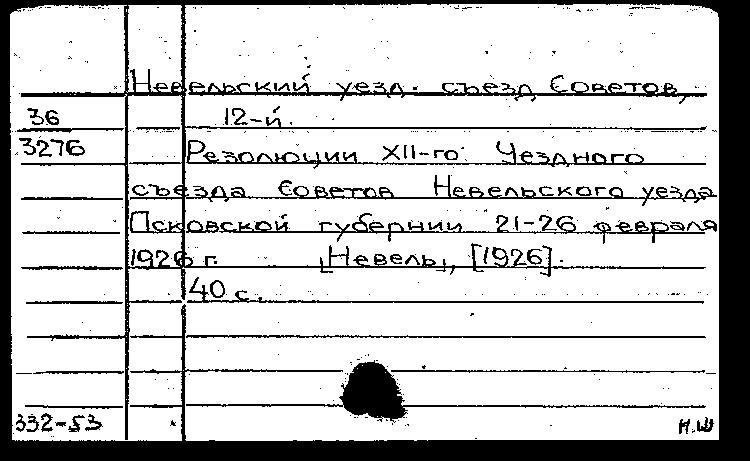 Невельский уезд. съезд Советов,
36 12-й.
3276 Резолюции XII-го Уездного
съезда Советов Невельского уезда
Псковской губернии 21-26 февраля
1926 г. [Невель], [1926].
40 с.
332-53 Н.Ш